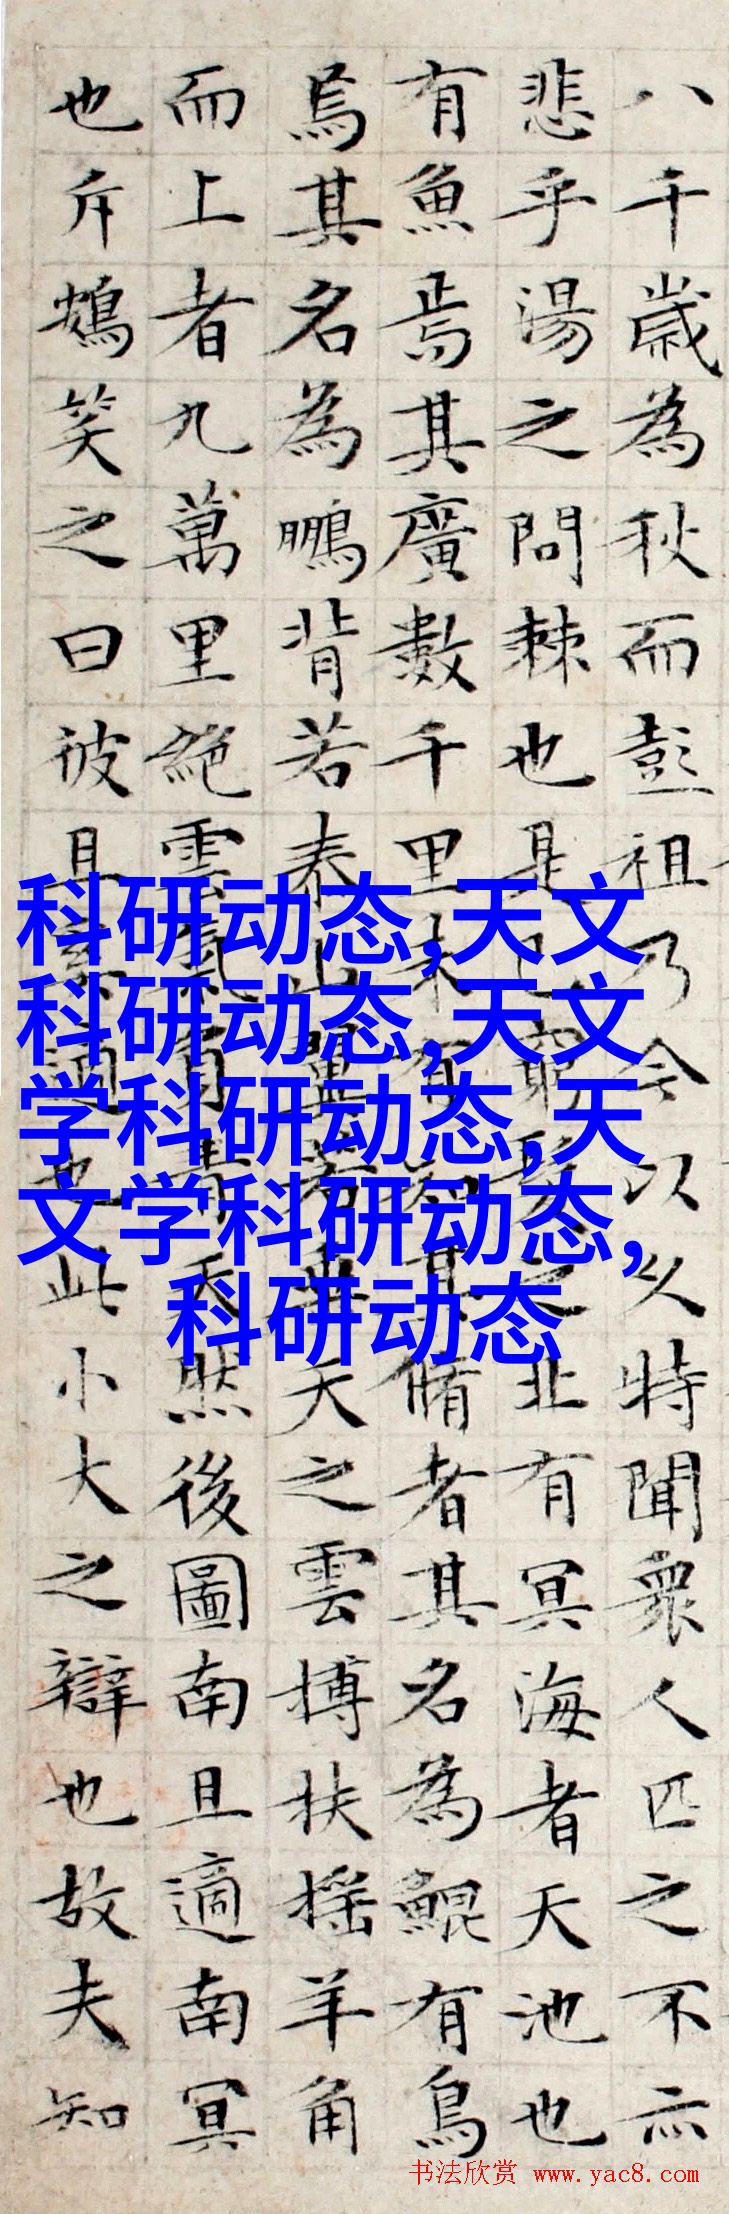 八千歲為秋而彭祖乃今以久特聞衆人匹之不亦
悲乎湯之問棘也是已窮髮之北有冥海者天池也
有魚焉其廣數千里未有知其脩者其名為鯤有鳥
焉其名為鵬背若泰山翼若垂天之雲搏扶摇羊角
而上者九萬里絕雲氣負青天然後圖南且適南冥
也斥鴳笑之曰彼且奚適也此小大之辯也故夫知
科研动态,天文
科研动态,天文
学科研动态,天
文学科研动态,
科研动态
书法欣赏 www.yac8.com